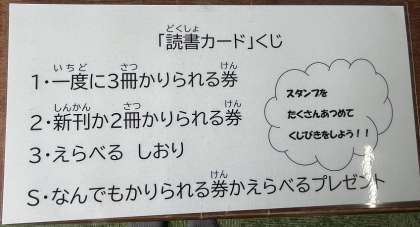 「読書カード」くじ
1・一度に3冊かりられる券
2・新刊か2冊かりられる券
3・えらべる しおり
S・なんでもかりられる券かえらべるプレゼント
スタンプを
たくさんあつめて
くじびきをしよう！！